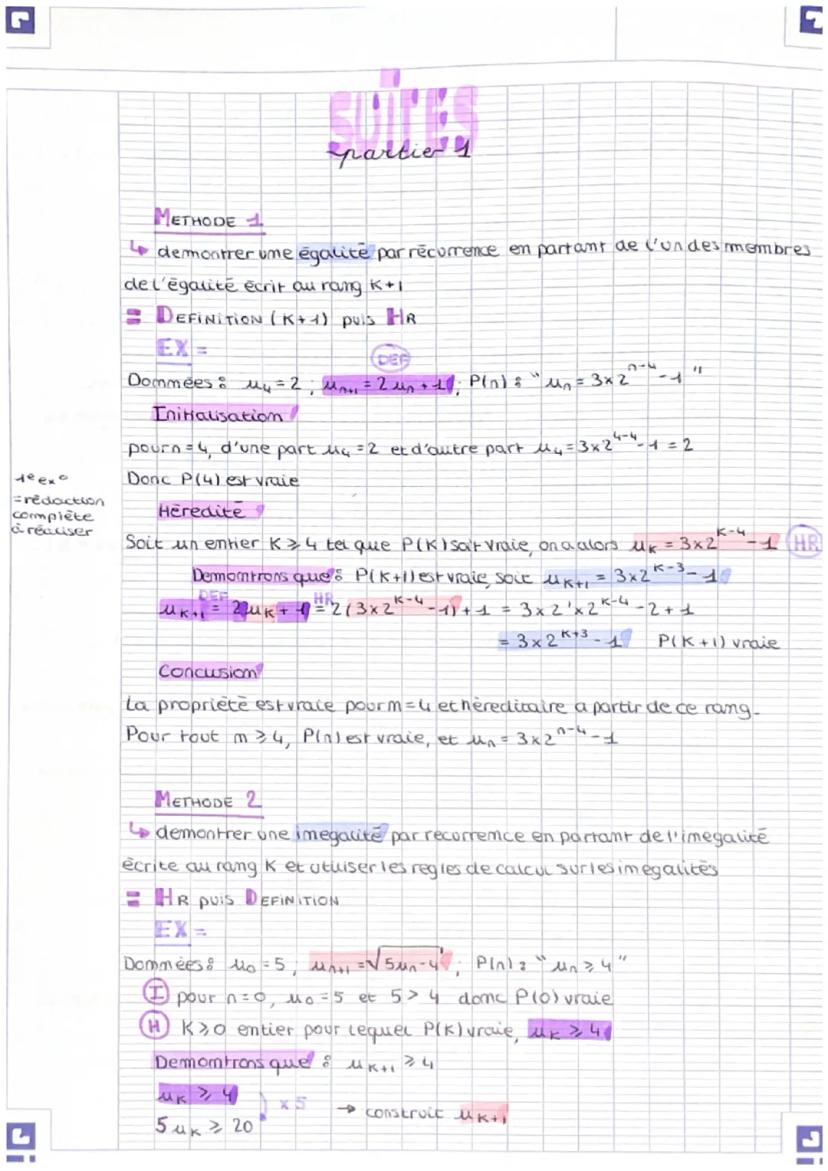 SUITES
partie 1
METHODE 1
↳ demontrer une égalité par récurrence en partant de l'un des membres
de l'égalité écrit au rang K+1
= DEFINITION (K+1) puis HR
EX =
DEF
Données : u₄ = 2 ; uₙ₊₁ = 2uₙ + 1 ; P(n) : "uₙ = 3×2ⁿ⁻⁴ - 1"
Initialisation
pour n = 4, d'une part u₄ = 2 et d'autre part u₄ = 3×2⁴⁻⁴ - 1 = 2
Donc P(4) est vraie
1e exo
= rédaction
complète
à réaliser
Hérédité
Soit un entier K ⩾ 4 tel que P(K) soit vraie, on a alors u_K = 3×2^(K-4) - 1 HR
Demontrons que : P(K+1) est vraie, soit u_(K+1) = 3×2^(K-3) - 1
DEF HR
u_(K+1) = 2u_K + 1 = 2(3×2^(K-4) - 1) + 1 = 3×2¹×2^(K-4) - 2 + 1
= 3×2^(K+3) - 1 P(K+1) vraie
Concusion
La propriété est vraie pour n = 4 et héreditaire a partir de ce rang.
Pour tout n ⩾ 4, P(n) est vraie, et uₙ = 3×2ⁿ⁻⁴ - 1
METHODE 2
↳ demontrer une inegalité par recurrence en partant de l'inegalité
écrite au rang K et utiliser les regles de calcul sur les inegalités
= HR puis DEFINITION
EX =
Données : u₀ = 5 ; uₙ₊₁ = √(5uₙ - 4) ; P(n) : "uₙ ⩾ 4"
I pour n = 0, u₀ = 5 et 5 > 4 donc P(0) vraie
H K ⩾ 0 entier pour lequel P(K) vraie, u_K ⩾ 4
Demontrons que : u_(K+1) ⩾ 4
u_K ⩾ 4
×5 → construit u_(K+1)
5u_K ⩾ 20